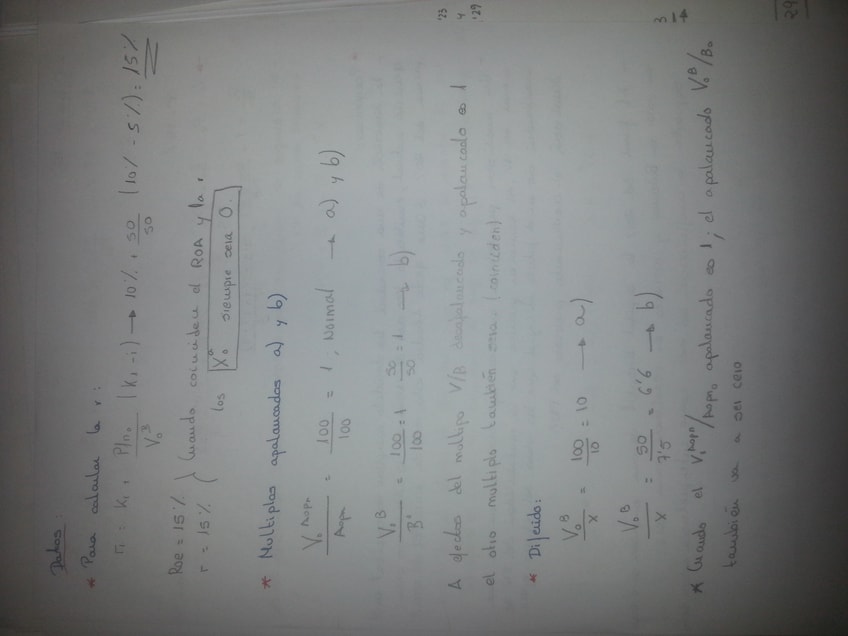 Datos:
* Para calcular la r:
r₁ : K₁ + P/n₀ / V₀ᴮ (K₁ - i) → 10% + 50/50 (10% - 5%) = 15%
ROE = 15%
r = 15%
} Cuando coinciden el ROA y la r
los X₀ᵃ siempre sera 0.
* Multiplos apalancados a) y b)
V₀ᴬᵒᵖⁿ / Aopn = 100/100 = 1 ; Normal → a) y b)
V₀ᴮ / B' = 100/100 = 1 50/50 = 1 → b)
A efectos del multiplo V/B desapalancado y apalancado es 1
el otro multiplo también sera. (coinciden)
'23
4
'29
* Diferido:
V₀ᴮ / X = 100/10 = 10 → a)
V₀ᴮ / X = 50/7'5 = 6'6 → b)
* Cuando el V₁ᴬᵒᵖⁿ/Aopn₀ apalancado es 1; el apalancado V₀ᴮ/B₀
también va a ser cero
3
29